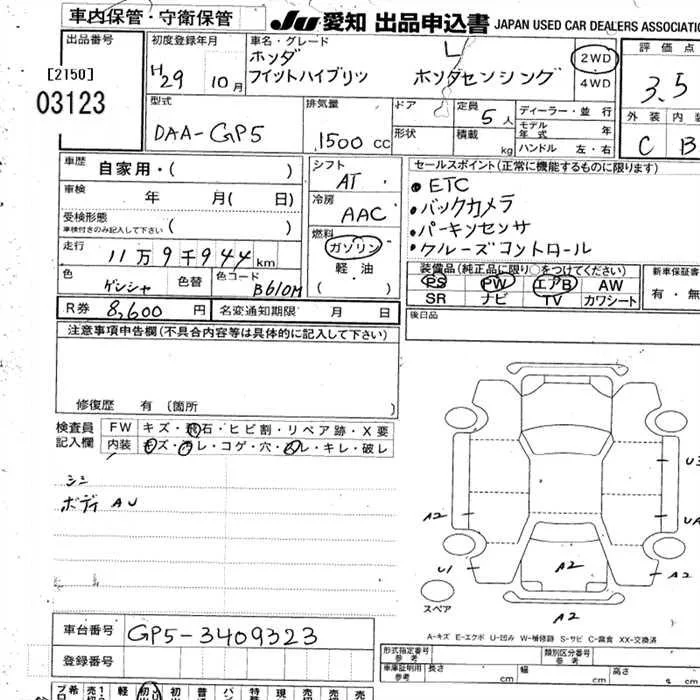 車内保管・守衛保管
JU 愛知 出品申込書 JAPAN USED CAR DEALERS ASSOCIATIO
出品番号
[2150]
03123
初度登録年月
H29 10月
車名・グレード
ホンダ
フイットハイブリッ ホンダセンシング
2WD
4WD
評価点
3.5
外装 内装
C B
型式
DAA-GP5
排気量
1500 cc
ドア
形状
定員 5人
積載 kg
ディーラー・並行
モデル年式 年
ハンドル 左・右
車歴 自家用・( )
車検 年 月( 日)
受検形態
車検付きのみ記入して下さい ( )
走行 11万9千944km
色 ゲンシャ 色替 色コード B610M
シフト
AT
冷房
AAC
燃料
ガソリン
軽油
( )
セールスポイント(正常に機能するものに限ります)
・ETC
・バックカメラ
・パーキンセンサ
・クルーズコントロール
装備品(純正品に限り○をつけてください)
PS PW エアB AW
SR ナビ TV カワシート
新車保証書
有・無
R券 8,600円 名変通知期限 月 日
後日品
注意事項申告欄(不具合内容等は具体的に記入して下さい)
修復歴 有 〔箇所 〕
検査員記入欄
FW キズ・飛石・ヒビ割・リペア跡・X要
内装 キズ・ヨレ・コゲ・穴・スレ・キレ・破レ
シミ
ボディ AU
A2
U1
A2
A2
A2
U3
UA
スペア
A-キズ E-エクボ U-凹み W-補修跡 S-サビ C-腐食 XX-交換済
車台番号 GP5-3409323
登録番号
形式指定番号 参考
類別区分番号 参考
車庫証明用 参考 長さ cm 幅 cm 高さ cm